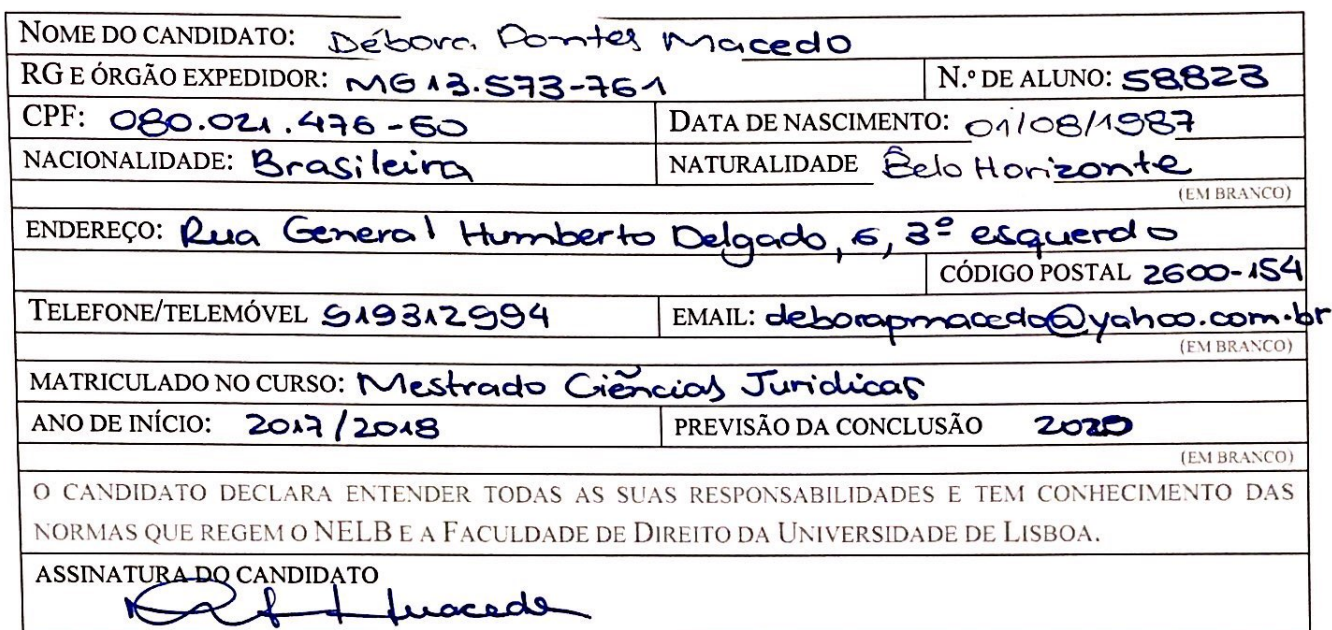 NOME DO CANDIDATO: Débora Pontes Macedo
RG E ÓRGÃO EXPEDIDOR: MG 13.573-761 N.º DE ALUNO: 58823
CPF: 080.021.476-60 DATA DE NASCIMENTO: 01/08/1987
NACIONALIDADE: Brasileira NATURALIDADE Belo Horizonte
(EM BRANCO)
ENDEREÇO: Rua General Humberto Delgado, 6, 3º esquerdo
CÓDIGO POSTAL 2600-154
TELEFONE/TELEMÓVEL 919312994 EMAIL: deborapmacedo@yahoo.com.br
(EM BRANCO)
MATRICULADO NO CURSO: Mestrado Ciências Jurídicas
ANO DE INÍCIO: 2017/2018 PREVISÃO DA CONCLUSÃO 2020
(EM BRANCO)
O CANDIDATO DECLARA ENTENDER TODAS AS SUAS RESPONSABILIDADES E TEM CONHECIMENTO DAS
NORMAS QUE REGEM O NELB E A FACULDADE DE DIREITO DA UNIVERSIDADE DE LISBOA.
ASSINATURA DO CANDIDATO